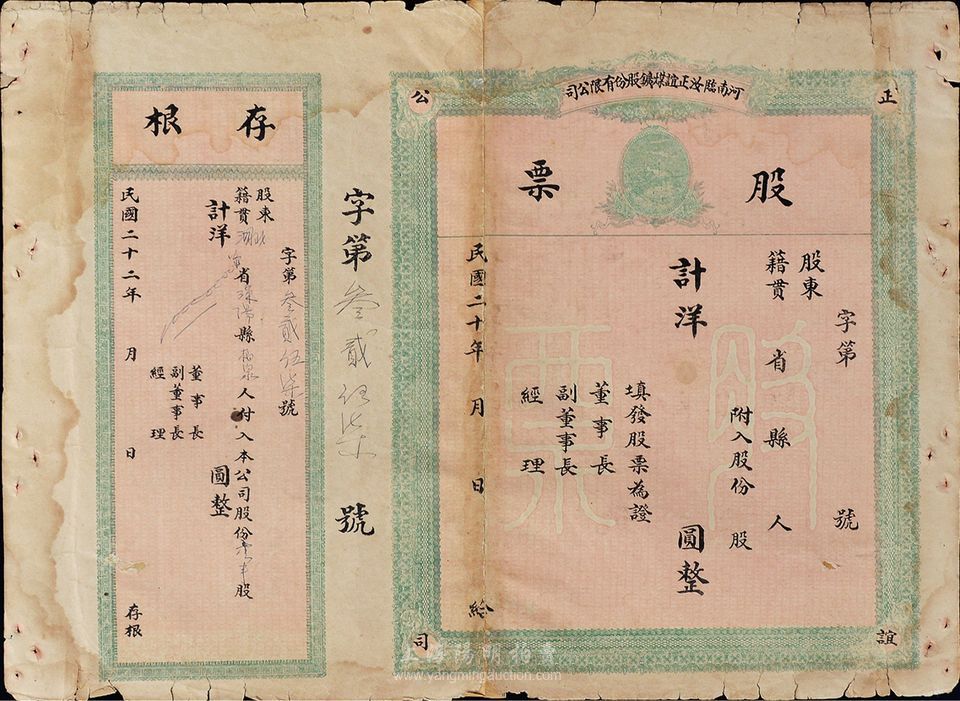 河南臨汝正誼煤鑛股份有限公司
正
誼
公
司
股票
字第 號
股東
籍貫 省 縣 人
附入股份 股
計洋 圓整
填發股票為證
董事長
副董事長
經理
民國二十年 月 日 給
字第叁貳伍柒號
存根
字第叁貳伍柒號
股東
籍貫 省 縣 人付入本公司股份 股
計洋 圓整
董事長
副董事長
經理
民國二十二年 月 日
存根
上海陽明拍賣
www.yangmingauction.com